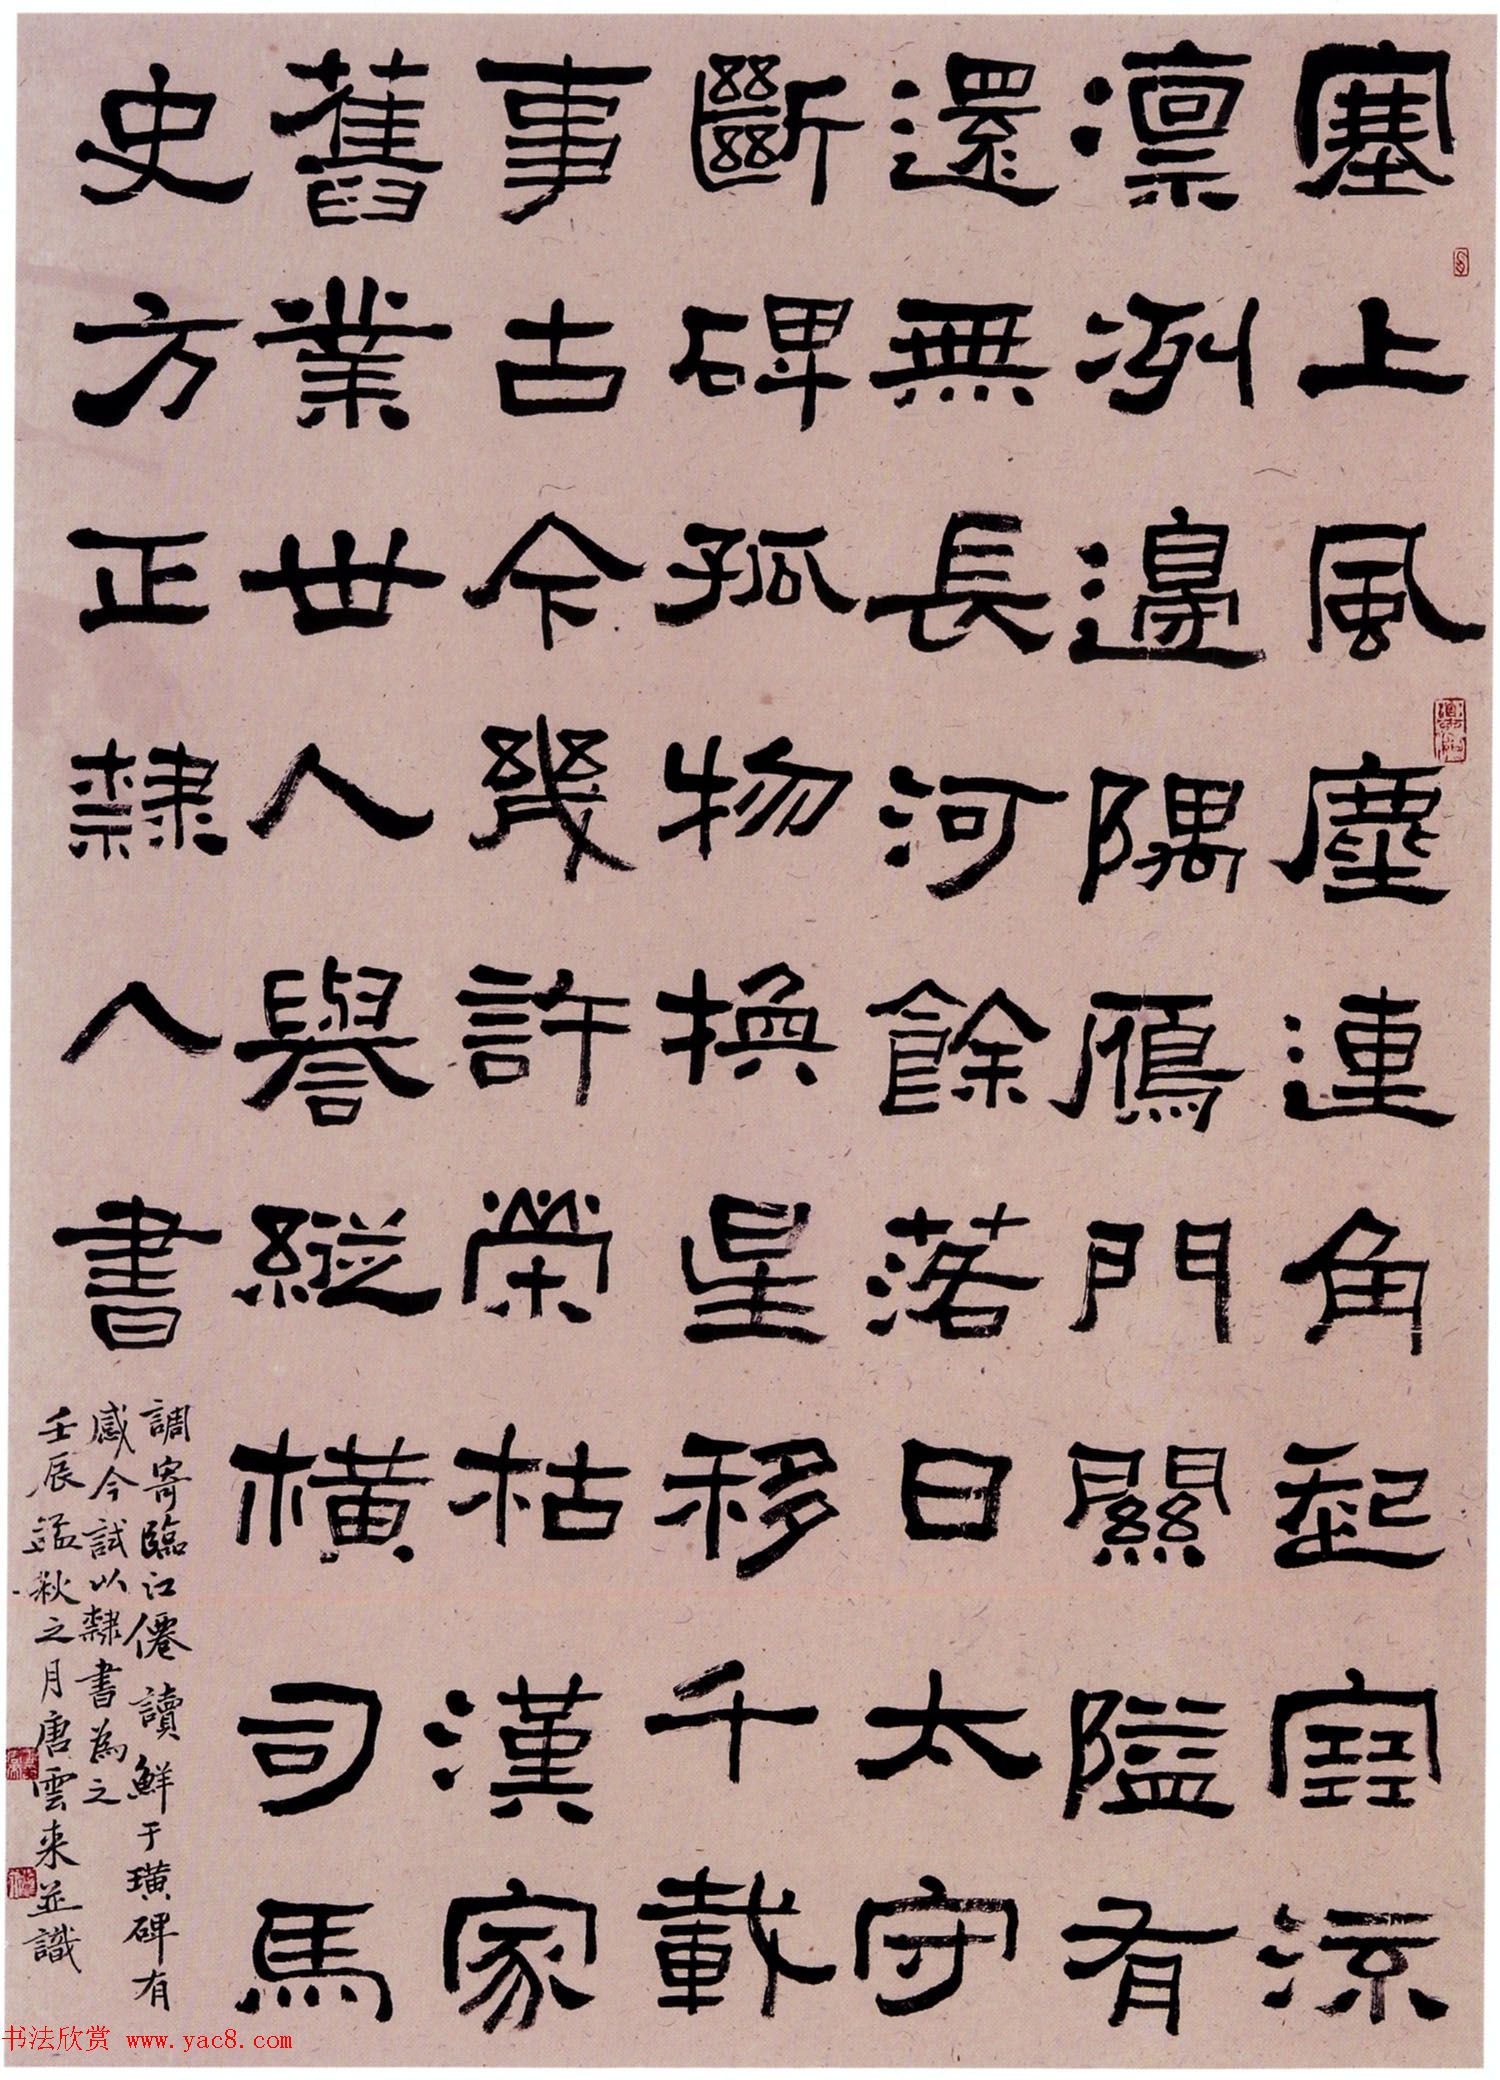 塞上風塵連角起寒流
凛冽邊隅鴈門關隘有
還無長河餘落日太守
斷碑孤物換星移千載
事古今幾許榮枯漢家
舊業世人譽縱橫司馬
史方正隸人書
調寄臨江僊讀鮮于璜碑有
感今試以隸書為之
壬辰孟秋之月唐雲来並識
书法欣赏 www.yac8.com